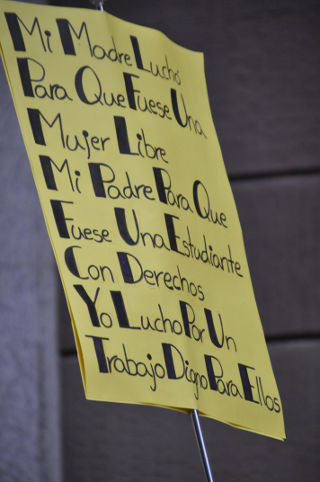 Mi Madre Luchó
Para Que Fuese Una
Mujer Libre
Mi Padre Para Que
Fuese Una Estudiante
Con Derechos
Yo Lucho Por Un
Trabajo Digno Para Ellos